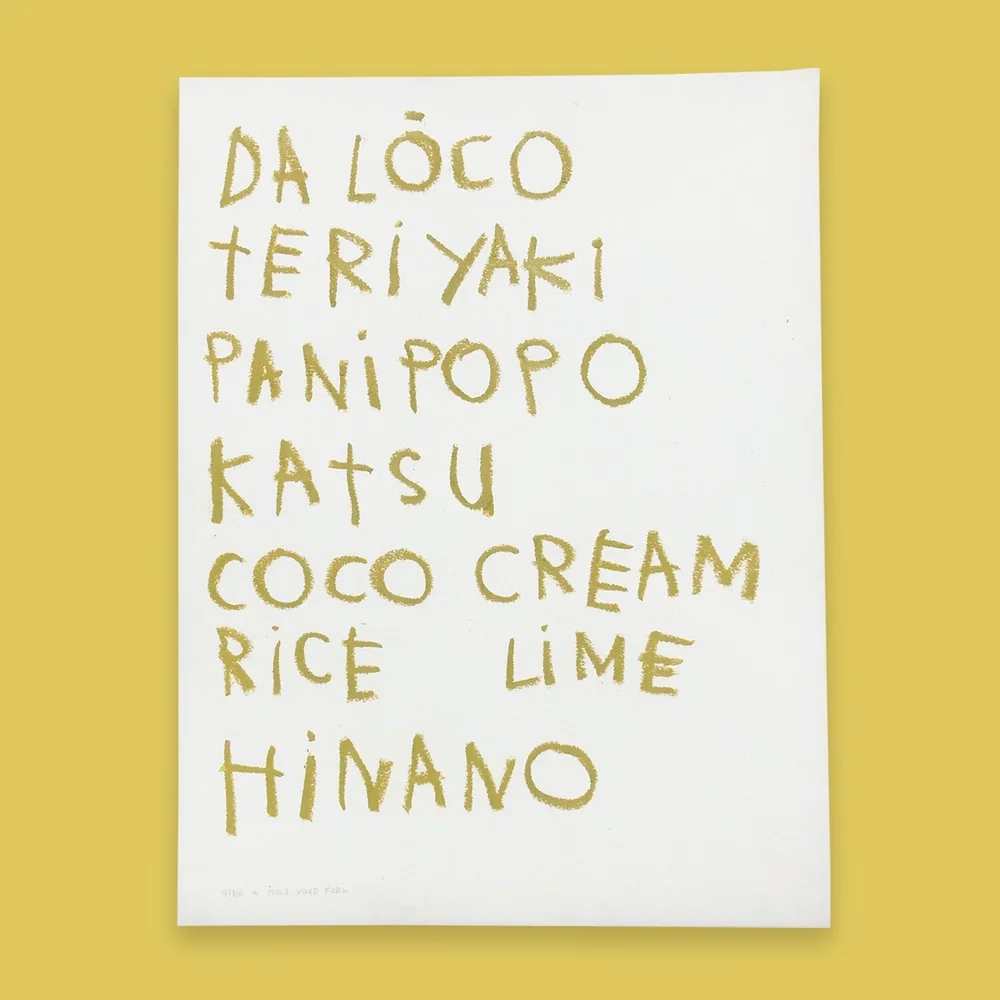 DA LŌCO
TERiYAKi
PANiPOPO
KATSU
COCO CREAM
RiCE LiME
HiNANO
HOLD YOUR FORK